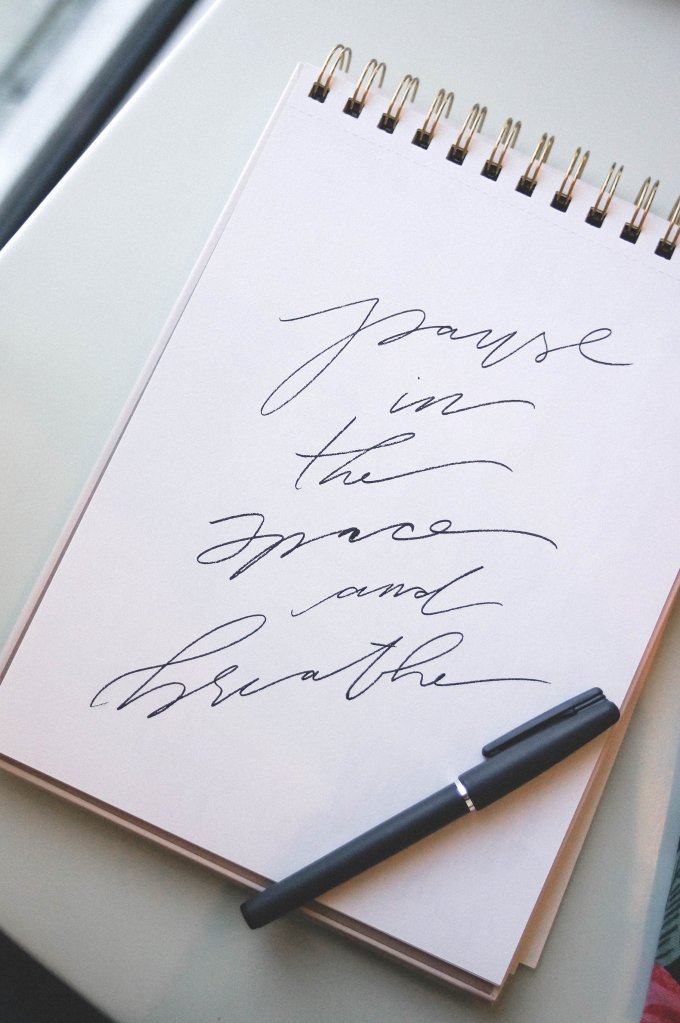 pause
in
the
space
and
breathe